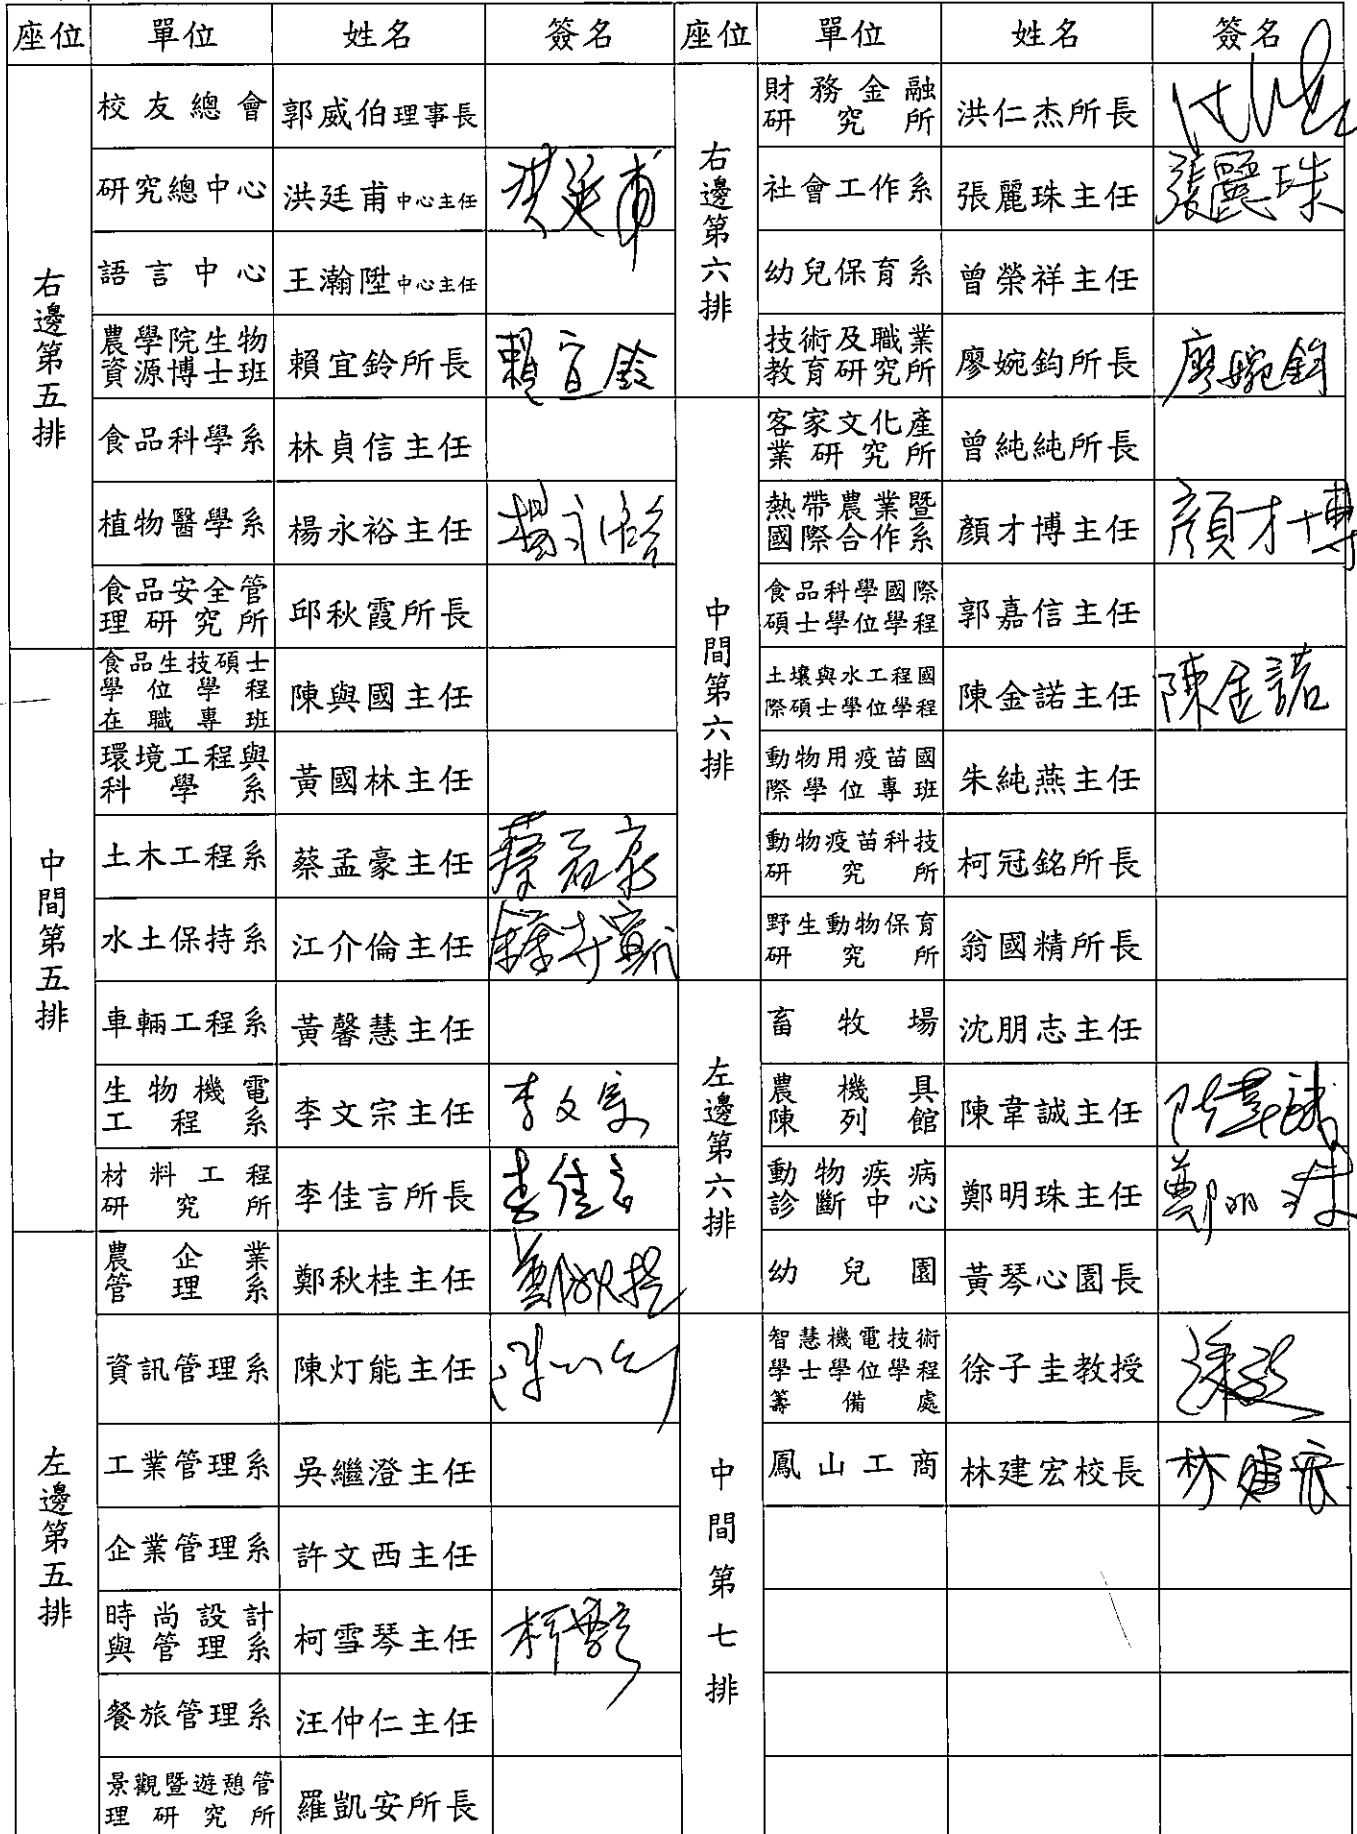 座位 單位 姓名 簽名 座位 單位 姓名 簽名
右邊第五排
校友總會 郭威伯理事長
研究總中心 洪廷甫中心主任 洪廷甫
語言中心 王瀚陞中心主任
農學院生物
資源博士班 賴宜鈴所長 賴宜鈴
食品科學系 林貞信主任
植物醫學系 楊永裕主任 楊永裕
食品安全管
理研究所 邱秋霞所長
中間第五排
食品生技碩士
學位學程
在職專班 陳與國主任
環境工程與
科學系 黃國林主任
土木工程系 蔡孟豪主任
水土保持系 江介倫主任
車輛工程系 黃馨慧主任
生物機電
工程系 李文宗主任 李文宗
材料工程
研究所 李佳言所長 李佳言
左邊第五排
農企業
管理系 鄭秋桂主任 鄭秋桂
資訊管理系 陳灯能主任
工業管理系 吳繼澄主任
企業管理系 許文西主任
時尚設計
與管理系 柯雪琴主任
餐旅管理系 汪仲仁主任
景觀暨遊憩管
理研究所 羅凱安所長
右邊第六排
財務金融
研究所 洪仁杰所長
社會工作系 張麗珠主任 張麗珠
幼兒保育系 曾榮祥主任
技術及職業
教育研究所 廖婉鈞所長 廖婉鈞
中間第六排
客家文化產
業研究所 曾純純所長
熱帶農業暨
國際合作系 顏才博主任 顏才博
食品科學國際
碩士學位學程 郭嘉信主任
土壤與水工程國
際碩士學位學程 陳金諾主任 陳金諾
動物用疫苗國
際學位專班 朱純燕主任
動物疫苗科技
研究所 柯冠銘所長
野生動物保育
研究所 翁國精所長
左邊第六排
畜牧場 沈朋志主任
農機具
陳列館 陳韋誠主任 陳韋誠
動物疾病
診斷中心 鄭明珠主任 鄭明珠
幼兒園 黃琴心園長
中間第七排
智慧機電技術
學士學位學程
籌備處 徐子圭教授
鳳山工商 林建宏校長 林建宏